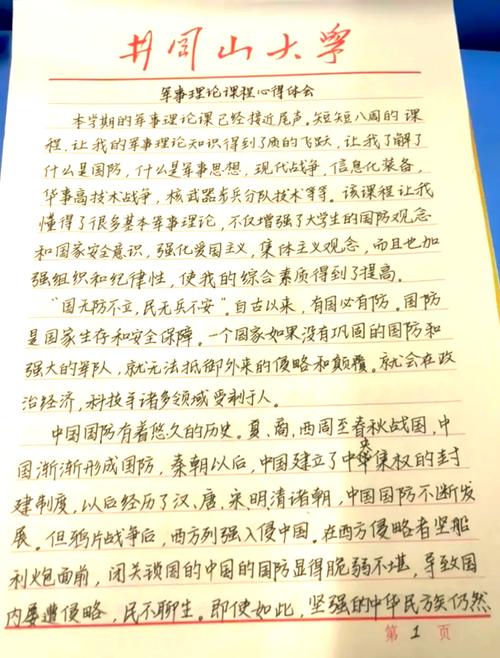 井冈山大学
军事理论课程心得体会
本学期的军事理论课已经接近尾声。短短八周的课
程，让我的军事理论知识得到了质的飞跃，让我了解了
什么是国防，什么是军事思想，现代战争，信息化装备，
华事高技术战争，核武器步兵分队技术等等。该课程让我
懂得了很多基本军事理论，不仅增强了大学生的国防观念
和国家安全意识，强化爱国主义，集体主义观念，而且也加
强组织和纪律性，使我的综合素质得到了提高。
“国无防不立，民无兵不安”。自古以来，有国必有防。国防
是国家生存和安全保障。一个国家如果没有巩固的国防和
强大的军队，就无法抵御外来的侵略和颠覆。就会在政
治经济，科技等诸多领域受制于人。
中国国防有着悠久的历史。夏、商，西周至春秋战国，中
国渐渐形成国防，秦朝以后，中国建立了中央集权的封
建制度，以后经历了汉、唐、宋、明清诸朝，中国国防不断发
展。但鸦片战争后，西方列强入侵中国。在西方侵略者坚船
利炮面前，闭关锁国的中国的国防显得脆弱不堪，导致国
内屡遭侵略，民不聊生。即使如此，坚强的中华民族仍然
第 1 页